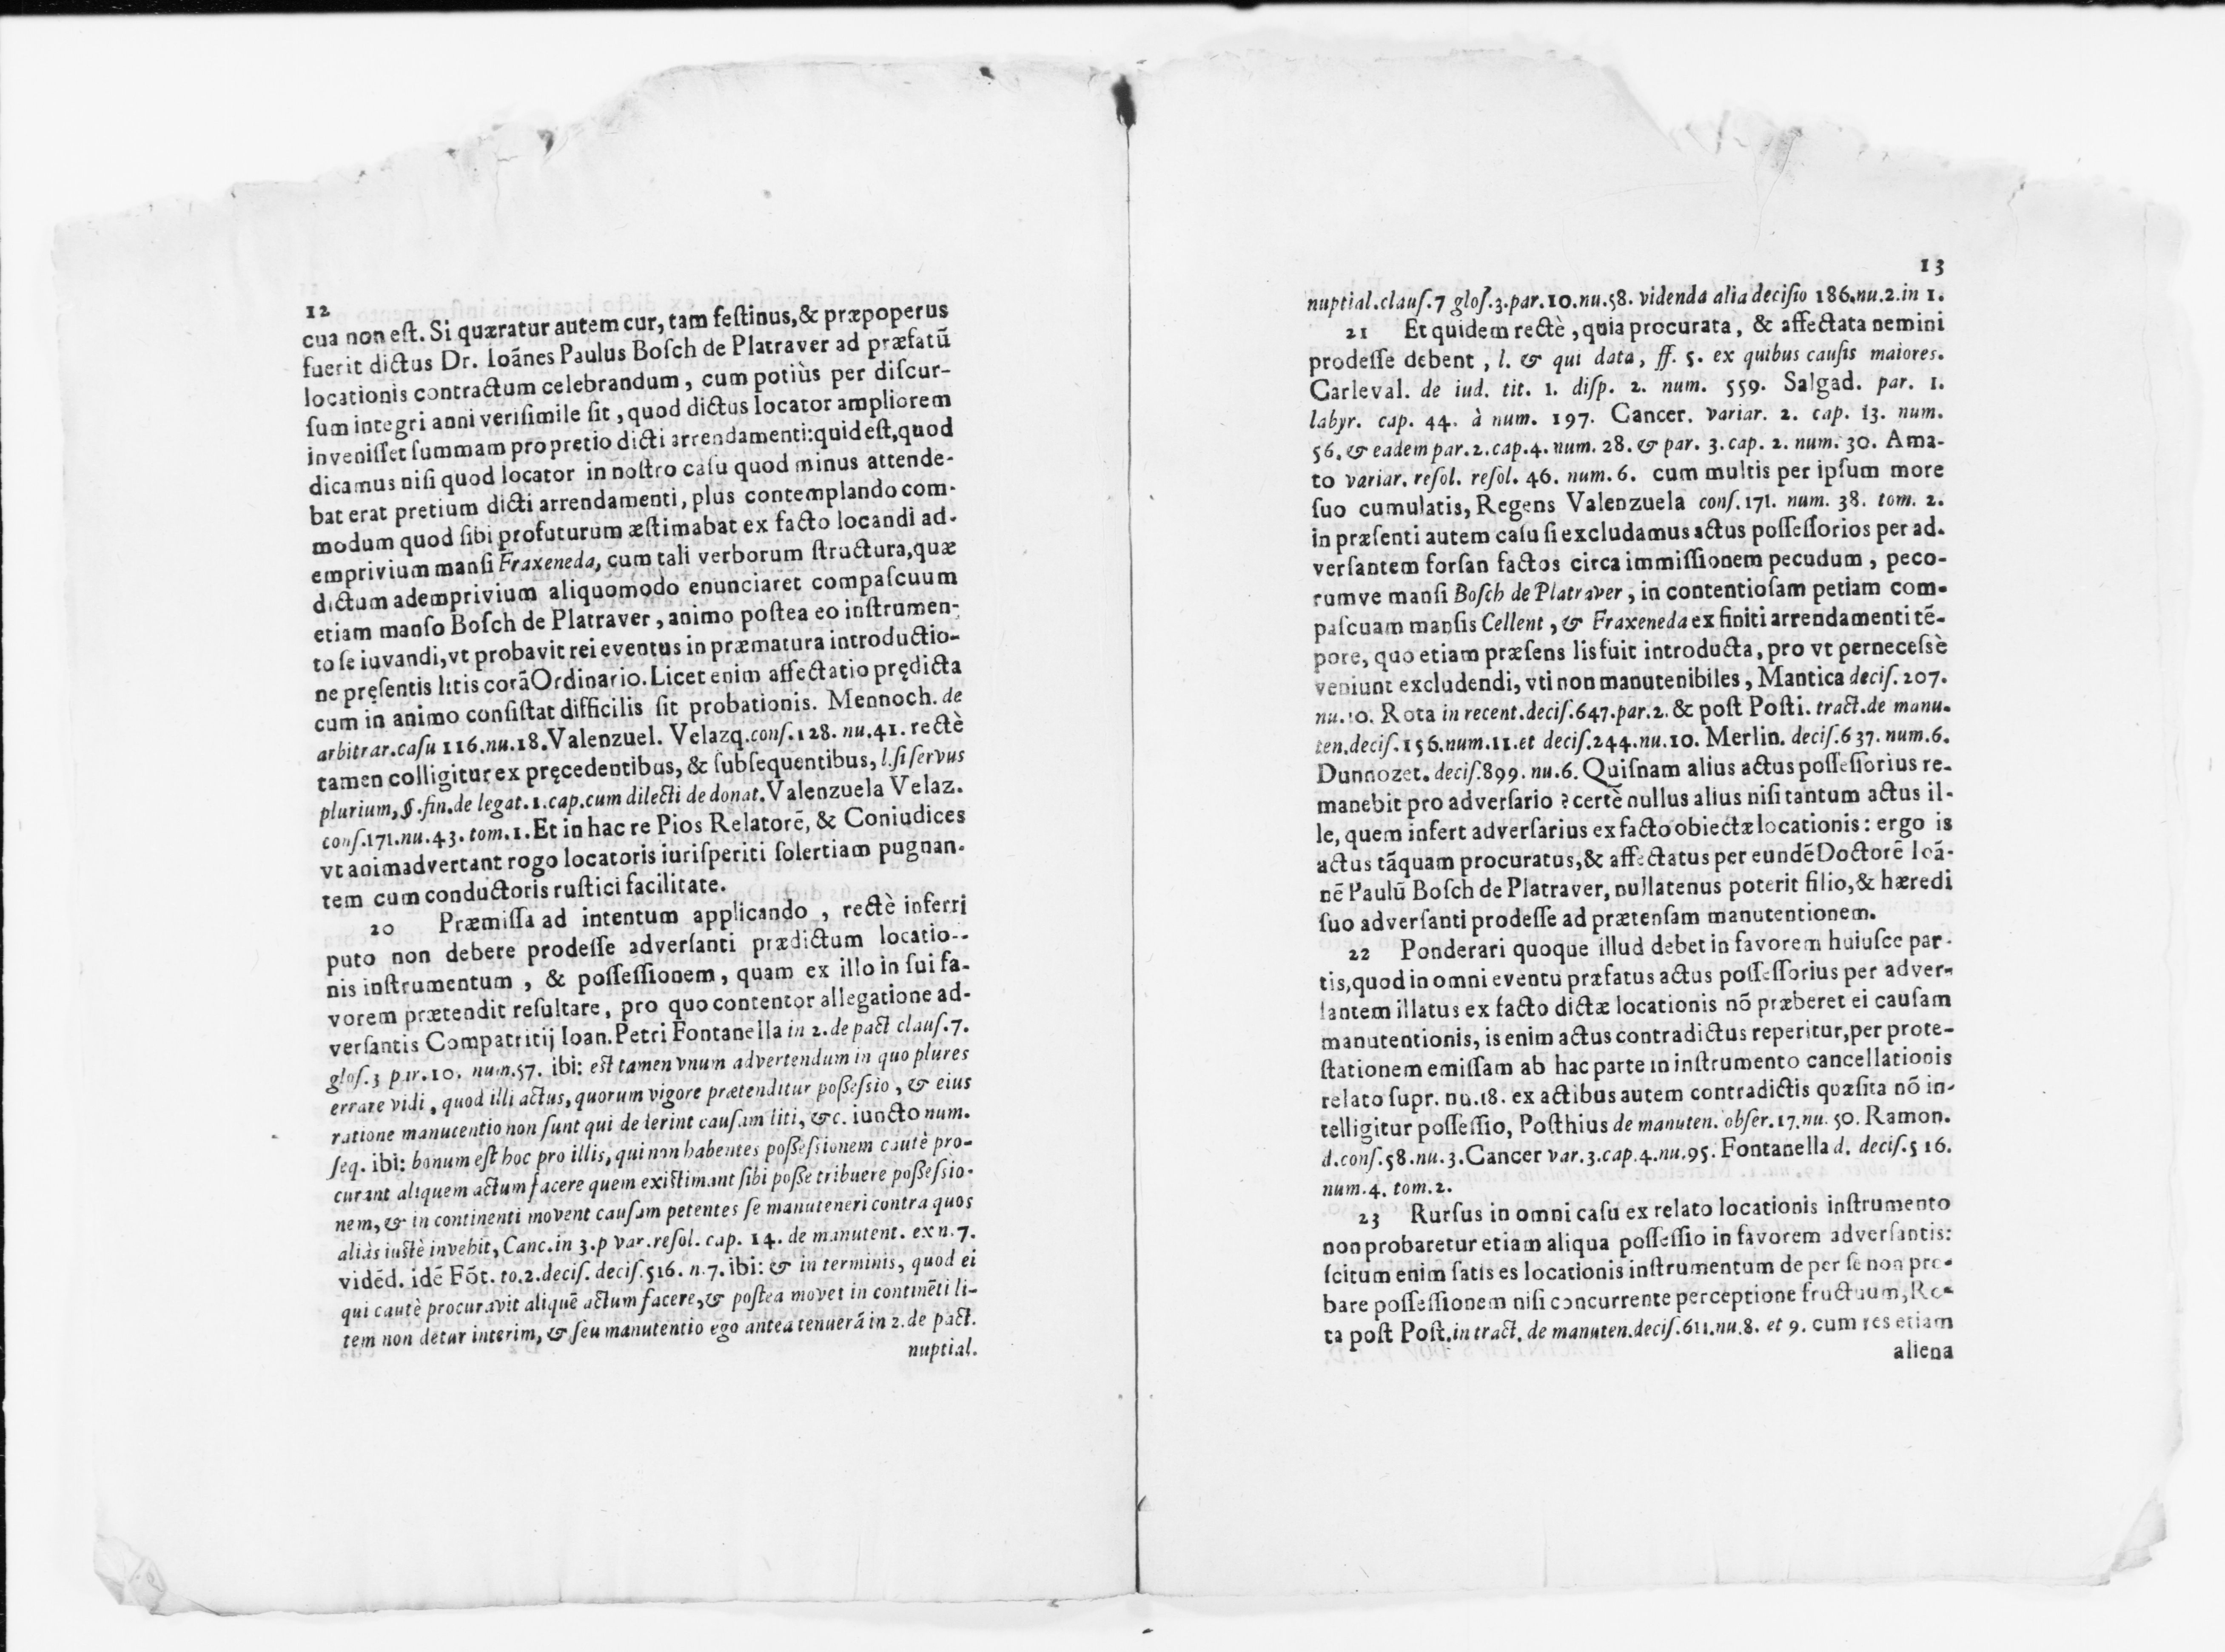 12
cua non eſt. Si quæratur autem cur, tam feſtinus, & præpoperus
fuerit dictus Dr. Ioãnes Paulus Boſch de Platraver ad præfatũ
locationis contractum celebrandum, cum potiùs per diſcur-
ſum integri anni veriſimile ſit, quod dictus locator ampliorem
inveniſſet ſummam pro pretio dicti arrendamenti: quid eſt, quod
dicamus niſi quod locator in noſtro caſu quod minus attende-
bat erat pretium dicti arrendamenti, plus contemplando com-
modum quod ſibi profuturum æſtimabat ex facto locandi ad-
emprivium manſi Fraxeneda, cum tali verborum ſtructura, quæ
dictum ademprivium aliquomodo enunciaret compaſcuum
etiam manſo Boſch de Platraver, animo poſtea eo inſtrumen-
to ſe iuvandi, vt probavit rei eventus in præmatura introductio-
ne pręſentis litis corã Ordinario. Licet enim affectatio prędicta
cum in animo conſiſtat difficilis ſit probationis. Mennoch. de
arbitrar. caſu 116. nu. 18. Valenzuel. Velazq. conſ. 128. nu. 41. rectè
tamen colligitur ex pręcedentibus, & ſubſequentibus, l. ſi ſervus
plurium, §. fin. de legat. 1. cap. cum dilecti de donat. Valenzuela Velaz.
conſ. 171. nu. 43. tom. 1. Et in hac re Pios Relatorẽ, & Coniudices
vt animadvertant rogo locatoris iuriſperiti ſolertiam pugnan-
tem cum conductoris ruſtici facilitate.
20 Præmiſſa ad intentum applicando, rectè inferri
puto non debere prodeſſe adverſanti prædictum locatio-
nis inſtrumentum, & poſſeſſionem, quam ex illo in ſui fa-
vorem prætendit reſultare, pro quo contentor allegatione ad-
verſantis Compatritij Ioan. Petri Fontanella in 2. de pact clauſ. 7.
gloſ. 3 par. 10. num. 57. ibi: eſt tamen vnum advertendum in quo plures
errare vidi, quod illi actus, quorum vigore prætenditur poßeſsio, & eius
ratione manutentio non ſunt qui dederint cauſam liti, &c. iuncto num.
ſeq. ibi: bonum eſt hoc pro illis, qui non habentes poßeſsionem cautè pro-
curant aliquem actum facere quem exiſtimant ſibi poße tribuere poßeſsio-
nem, & in continenti movent cauſam petentes ſe manuteneri contra quos
aliàs iuſtè invehit, Canc. in 3. p var. reſol. cap. 14. de manutent. ex n. 7.
vidẽd. idẽ Fõt. to. 2. deciſ. deciſ. 516. n. 7. ibi: & in terminis, quod ei
qui cautè procuravit aliquẽ actum facere, & poſtea movet in continẽti li-
tem non detur interim, & ſeu manutentio ego antea tenuerã in 2. de pact.
nuptial.
13
nuptial. clauſ. 7 gloſ. 3. par. 10. nu. 58. videnda alia deciſio 186. nu. 2. in 1.
21 Et quidem rectè, quia procurata, & affectata nemini
prodeſſe debent, l. & qui data, ff. 5. ex quibus cauſis maiores.
Carleval. de iud. tit. 1. diſp. 2. num. 559. Salgad. par. 1.
labyr. cap. 44. à num. 197. Cancer. variar. 2. cap. 13. num.
56. & eadem par. 2. cap. 4. num. 28. & par. 3. cap. 2. num. 30. Ama-
to variar. reſol. reſol. 46. num. 6. cum multis per ipſum more
ſuo cumulatis, Regens Valenzuela conſ. 171. num. 38. tom. 2.
in præſenti autem caſu ſi excludamus actus poſſeſſorios per ad-
verſantem forſan factos circa immiſſionem pecudum, peco-
rumve manſi Boſch de Platraver, in contentioſam petiam com-
paſcuam manſis Cellent, & Fraxeneda ex finiti arrendamenti tẽ-
pore, quo etiam præſens lis fuit introducta, pro vt perneceſsè
veniunt excludendi, vti non manutenibiles, Mantica deciſ. 207.
nu. 10. Rota in recent. deciſ. 647. par. 2. & poſt Poſti. tract. de manu-
ten. deciſ. 156. num. 11. et deciſ. 244. nu. 10. Merlin. deciſ. 637. num. 6.
Dunnozet. deciſ. 899. nu. 6. Quiſnam alius actus poſſeſſorius re-
manebit pro adverſario? certè nullus alius niſi tantum actus il-
le, quem infert adverſarius ex facto obiectæ locationis: ergo is
actus tãquam procuratus, & affectatus per eundẽ Doctorẽ Ioã-
nẽ Paulũ Boſch de Platraver, nullatenus poterit filio, & hæredi
ſuo adverſanti prodeſſe ad prætenſam manutentionem.
22 Ponderari quoque illud debet in favorem huiuſce par-
tis, quod in omni eventu præfatus actus poſſeſſorius per adver-
ſantem illatus ex facto dictæ locationis nõ præberet ei cauſam
manutentionis, is enim actus contradictus reperitur, per prote-
ſtationem emiſſam ab hac parte in inſtrumento cancellationis
relato ſupr. nu. 18. ex actibus autem contradictis quæſita nõ in-
telligitur poſſeſſio, Poſthius de manuten. obſer. 17. nu. 50. Ramon.
d. conſ. 58. nu. 3. Cancer var. 3. cap. 4. nu. 95. Fontanella d. deciſ. 516.
num. 4. tom. 2.
23 Rurſus in omni caſu ex relato locationis inſtrumento
non probaretur etiam aliqua poſſeſſio in favorem adverſantis:
ſcitum enim ſatis es locationis inſtrumentum de per ſe non pro-
bare poſſeſſionem niſi concurrente perceptione fructuum, Ro-
ta poſt Poſt. in tract. de manuten. deciſ. 611. nu. 8. et 9. cum res etiam
aliena